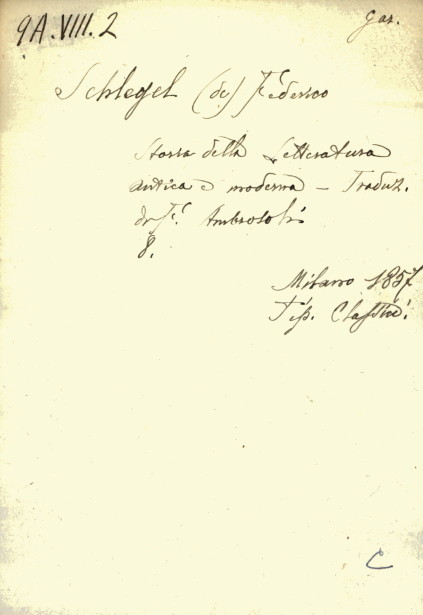 9A.VIII.2
Gar.
Schlegel (de) Federico
Storia della Letteratura
antica e moderna – Traduz.
di F. Ambrosoli
8.
Milano 1857
Tip. Classici
C